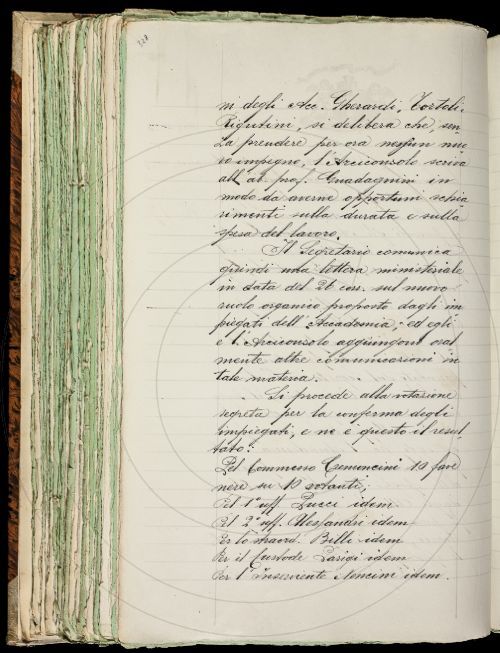 ni degli Acc. Gherardi, Tortoli
Rigutini, si delibera che, sen-
za prendere per ora nessun nuo
vo impegno, l'Arciconsolo scriva
all'ab. prof. Guadagnini in
modo da averne opportuni schia
rimenti sulla durata e sulla
spesa del lavoro.
Il Segretario comunica
quindi una lettera ministeriale
in data del 26 corr. sul nuovo
ruolo organico proposto dagli im
piegati dell'Accademia; ed egli
e l'Arciconsolo aggiungono oral
mente altre comunicazioni in
tale materia.
Si procede alla votazione
segreta per la conferma degli
impiegati, e ne è questo il resul
tato:
Pel Commesso Cenuncini 10 favo
revoli su 10 votanti;
Pel 1° uff. Pucci idem
Pel 2° uff. Alessandri idem
Per lo straord. Billi idem
Per il custode Parigi idem
Per l'Inserviente Nencini idem.